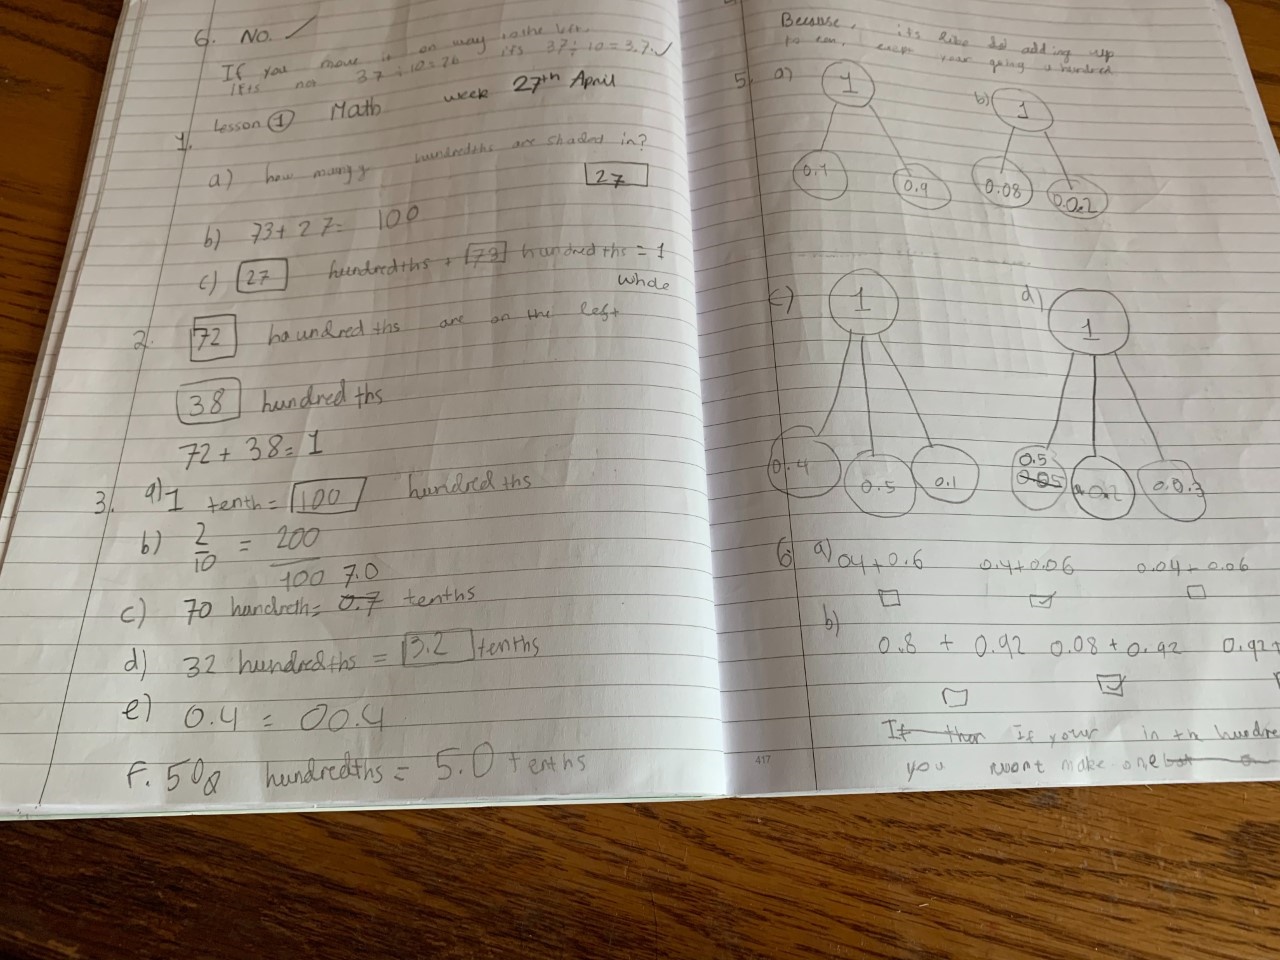 6. No. ✓
If you move it on way to the
its not 37 ÷ 10 = its 37 ÷ 10 = 3.7. ✓
Lesson 1 Math week 27th April
1.
a) how many hundredths are shaded in?
27
b) 73 + 27 = 100
c) 27 hundredths + 73 hundredths = 1
whole
2. 72 haundredths are on the left
38 hundredths
72 + 38 = 1
3. a) 1 tenth = 100 hundredths
b) 2/10 = 200/100
c) 70 handreth = 0.7 7.0 tenths
d) 32 hundredths = 3.2 tenths
e) 0.4 = 00.4
F. 50 hundredths = 5.0 tenths
Because, its like adding up
to
5. a) 1
0.1 0.9
b) 1
0.08 0.02
c) 1
0.4 0.5 0.1
d) 1
0.5
0.05 0.02 0.03
6. a) 04 + 0.6 0.4 + 0.06 0.04 + 0.06
b)
0.8 + 0.92 0.08 + 0.92 0.92 +
It than If your in th hundre
you wont make one
417